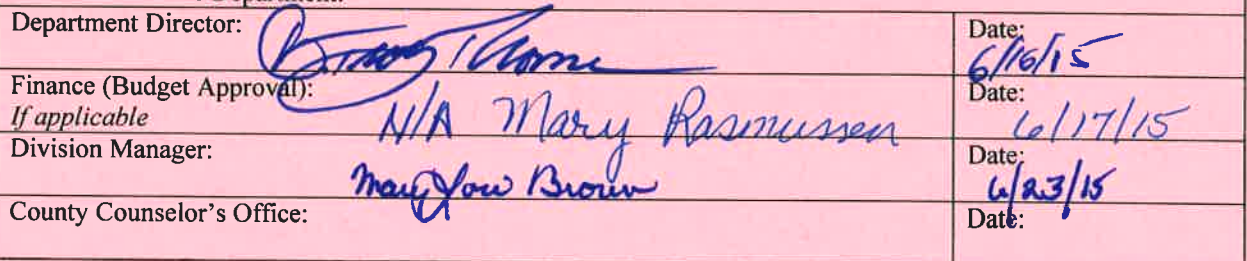 Department Director: Date: 6/16/15
Finance (Budget Approval): Date:
If applicable N/A Mary Rasmussen 6/17/15
Division Manager: Date:
Mary Lou Brown 6/23/15
County Counselor's Office: Date: